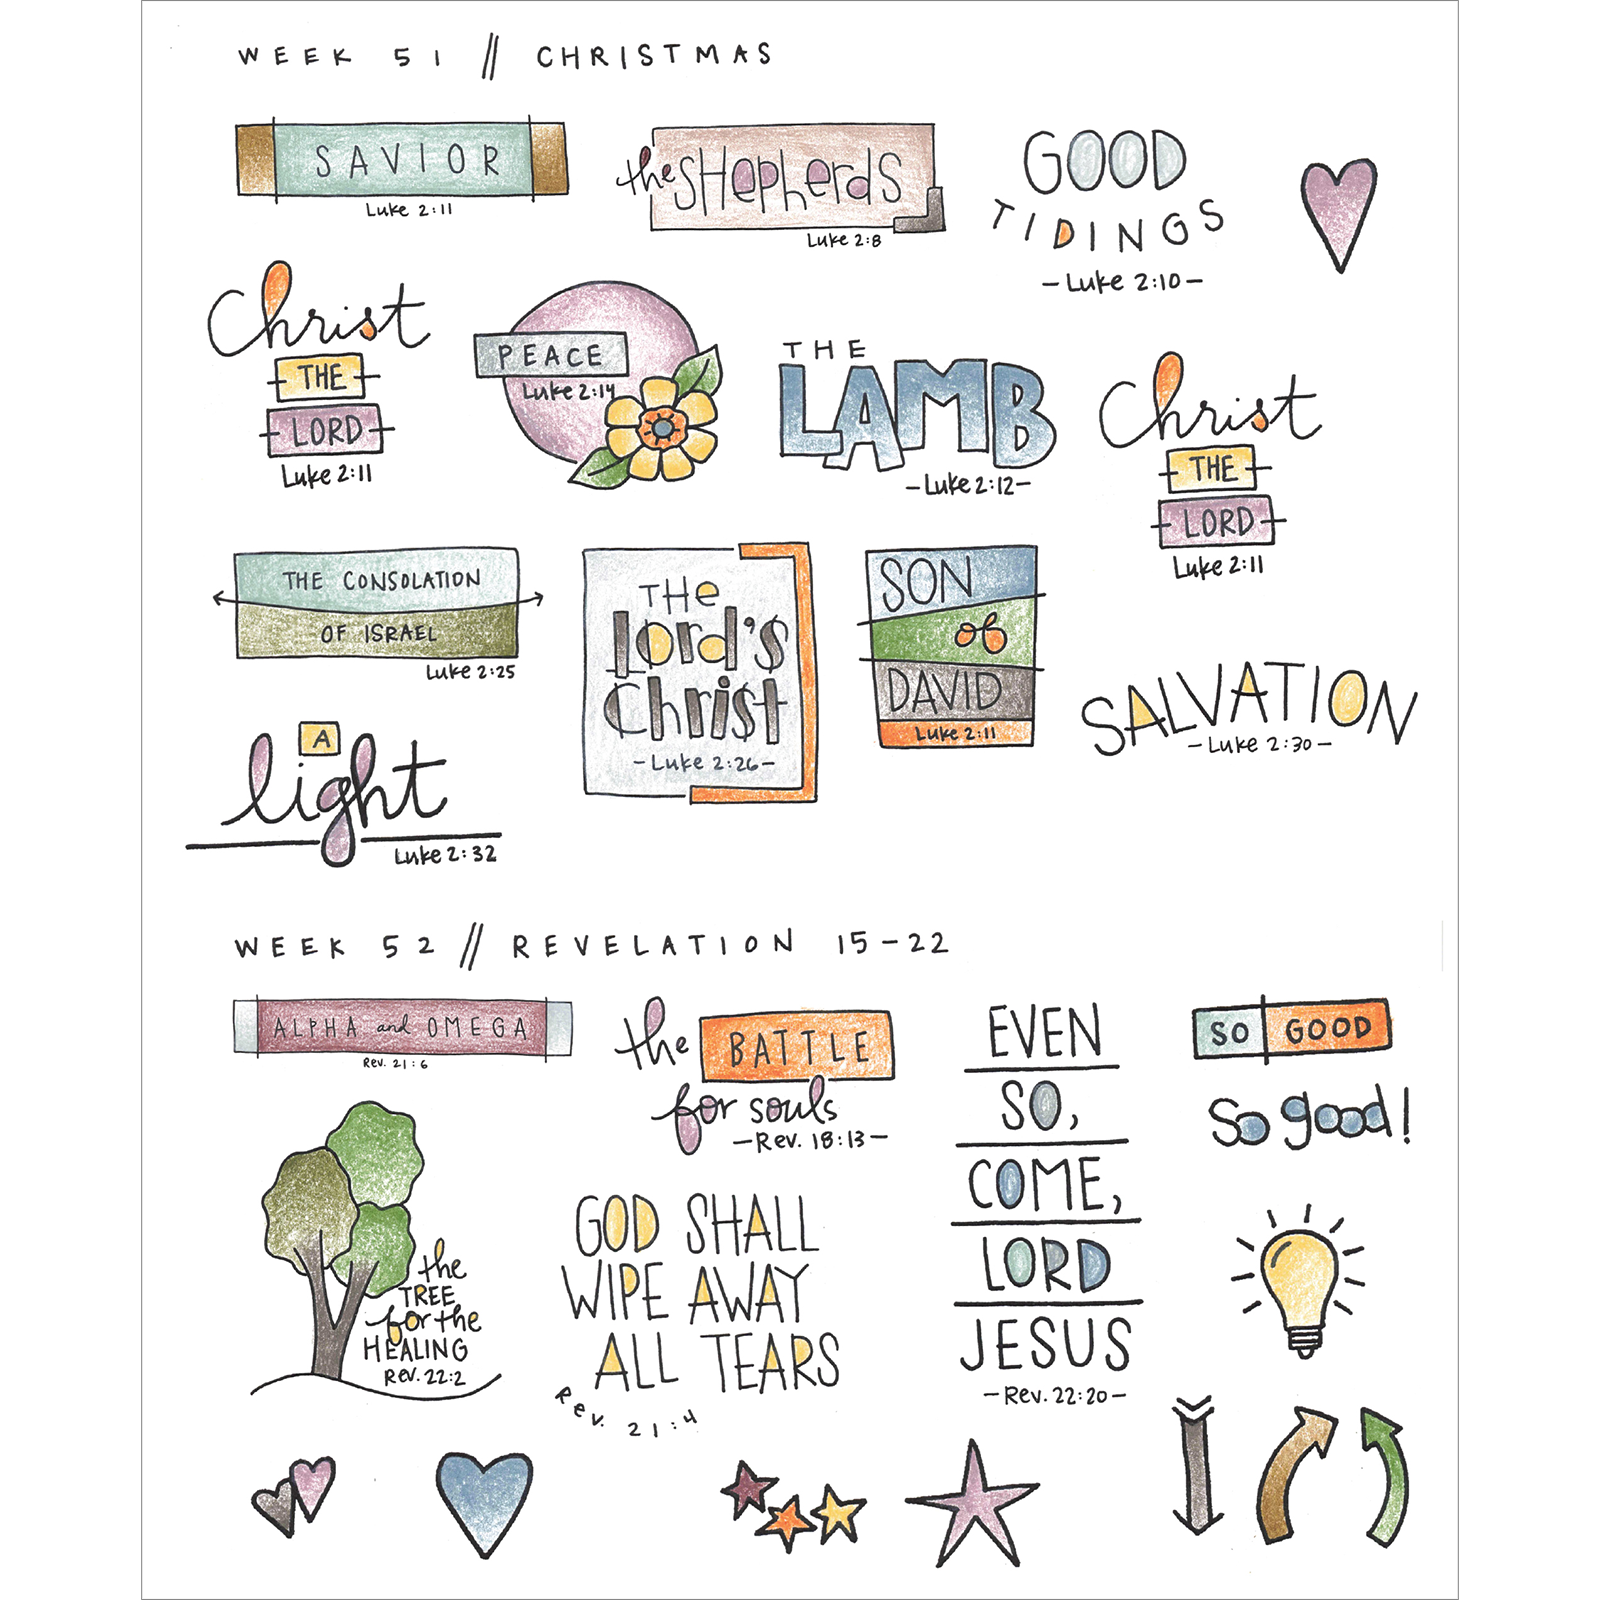 WEEK 51 // CHRISTMAS
SAVIOR
Luke 2:11
the SHepherdS
Luke 2:8
GOOD
TIDINGS
-Luke 2:10-
Christ
THE
LORD
Luke 2:11
PEACE
Luke 2:14
THE
LAMB
-Luke 2:12-
Christ
THE
LORD
Luke 2:11
THE CONSOLATION
OF ISRAEL
Luke 2:25
THe
Lord's
Christ
-Luke 2:26-
SON
of
DAVID
Luke 2:11
SALVATION
-Luke 2:30-
A
light
Luke 2:32
WEEK 52 // REVELATION 15-22
ALPHA and OMEGA
Rev. 21:6
the BATTLE
for souls
-Rev. 18:13-
EVEN
SO,
COME,
LORD
JESUS
-Rev. 22:20-
SO GOOD
So good!
the
TREE
for the
HEALING
Rev. 22:2
GOD SHALL
WIPE AWAY
ALL TEARS
Rev. 21:4